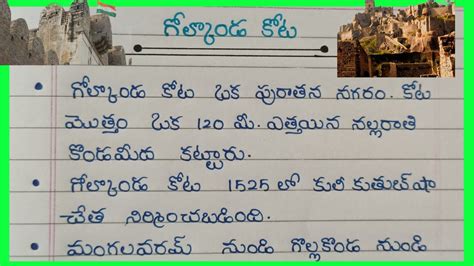 గోల్కొండ కోట
• గోల్కొండ కోట ఒక పురాతన నగరం. కోట
మొత్తం ఒక 120 మీ. ఎత్తయిన నల్లరాతి
కొండమీద కట్టారు.
• గోల్కొండ కోట 1525 లో కులీ కుతుబ్‌షా
చేత నిర్మించబడింది.
• మంగలవరమ్ నుండి గొల్లకొండ నుండి